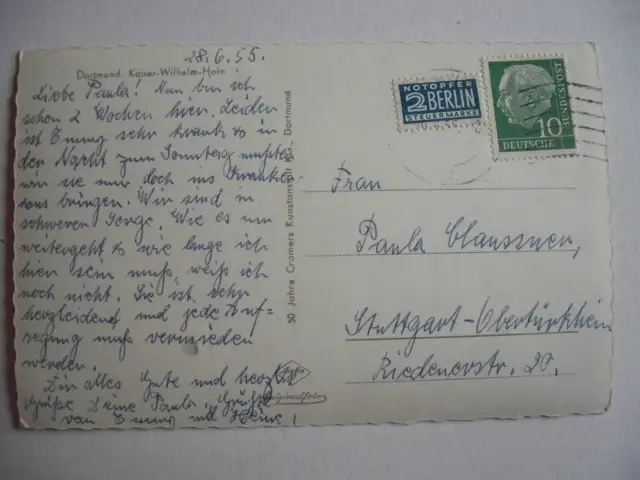 28.6.55.
Dortmund, Kaiser-Wilhelm-Hain
Liebe Paula! Nun bin ich
schon 2 Wochen hier. Leider
ist Emmy sehr krank & in
der Nacht zum Sonntag mußte
wir sie nun doch ins Kranken-
haus bringen. Wir sind in
schweren Sorge. Wie es nun
weitergeht & wie lange ich
hier sein muß, weiß ich
noch nicht. Sie ist sehr
herzleidend und jede Auf=
regung muß vermieden
werden.
Dir alles Gute und herzl.
Grüße Deine Paula. Grüße
von Emmy und Heinz!
50 Jahre Cramers Kunstanstalt KG., Dortmund
Agfa
Originalfoto
NOTOPFER
2 BERLIN
STEUERMARKE
10
DEUTSCHE
BUNDESPOST
Frau
Paula Claussner,
Stuttgart-Obertürkheim
Riedenerstr. 20.